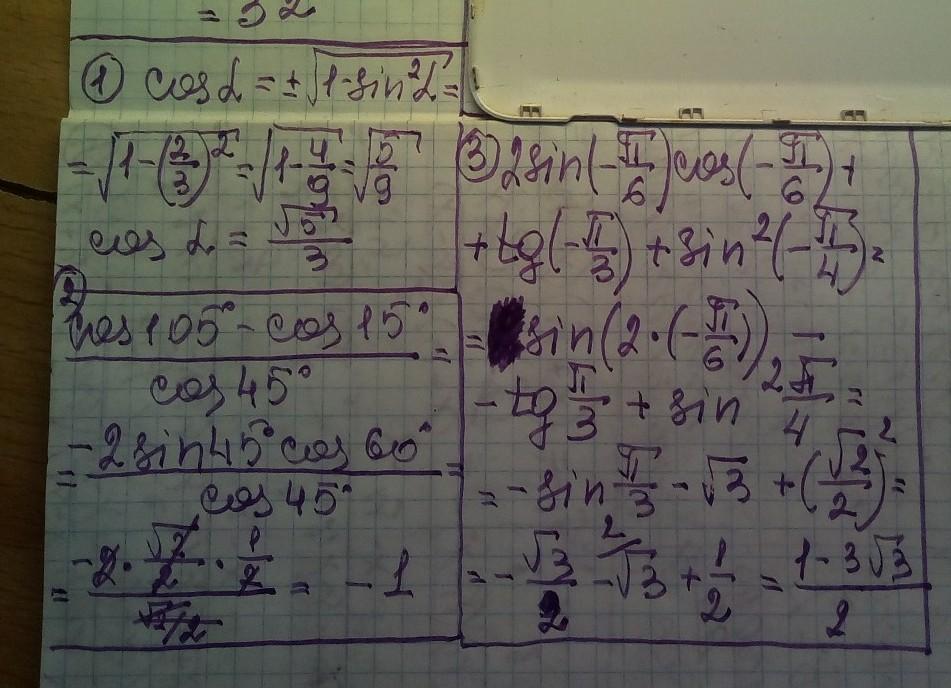 = 32
① cos α = ±√(1-sin²α) =
= √(1-(2/3)²) = √(1-4/9) = √(5/9)
cos α = √5/3
②
(cos 105° - cos 15°)/(cos 45°) =
= (-2 sin 45° cos 60°)/(cos 45°) =
= (-2 · √2/2 · 1/2)/(√2/2) = -1
③ 2 sin(-π/6) cos(-π/6) +
+ tg(-π/3) + sin²(-π/4) =
= sin(2·(-π/6)) -
- tg π/3 + sin² π/4 =
= - sin π/3 - √3 + (√2/2)² =
= - √3/2 - √3 (2 + 1/2 = (1-3√3)/2